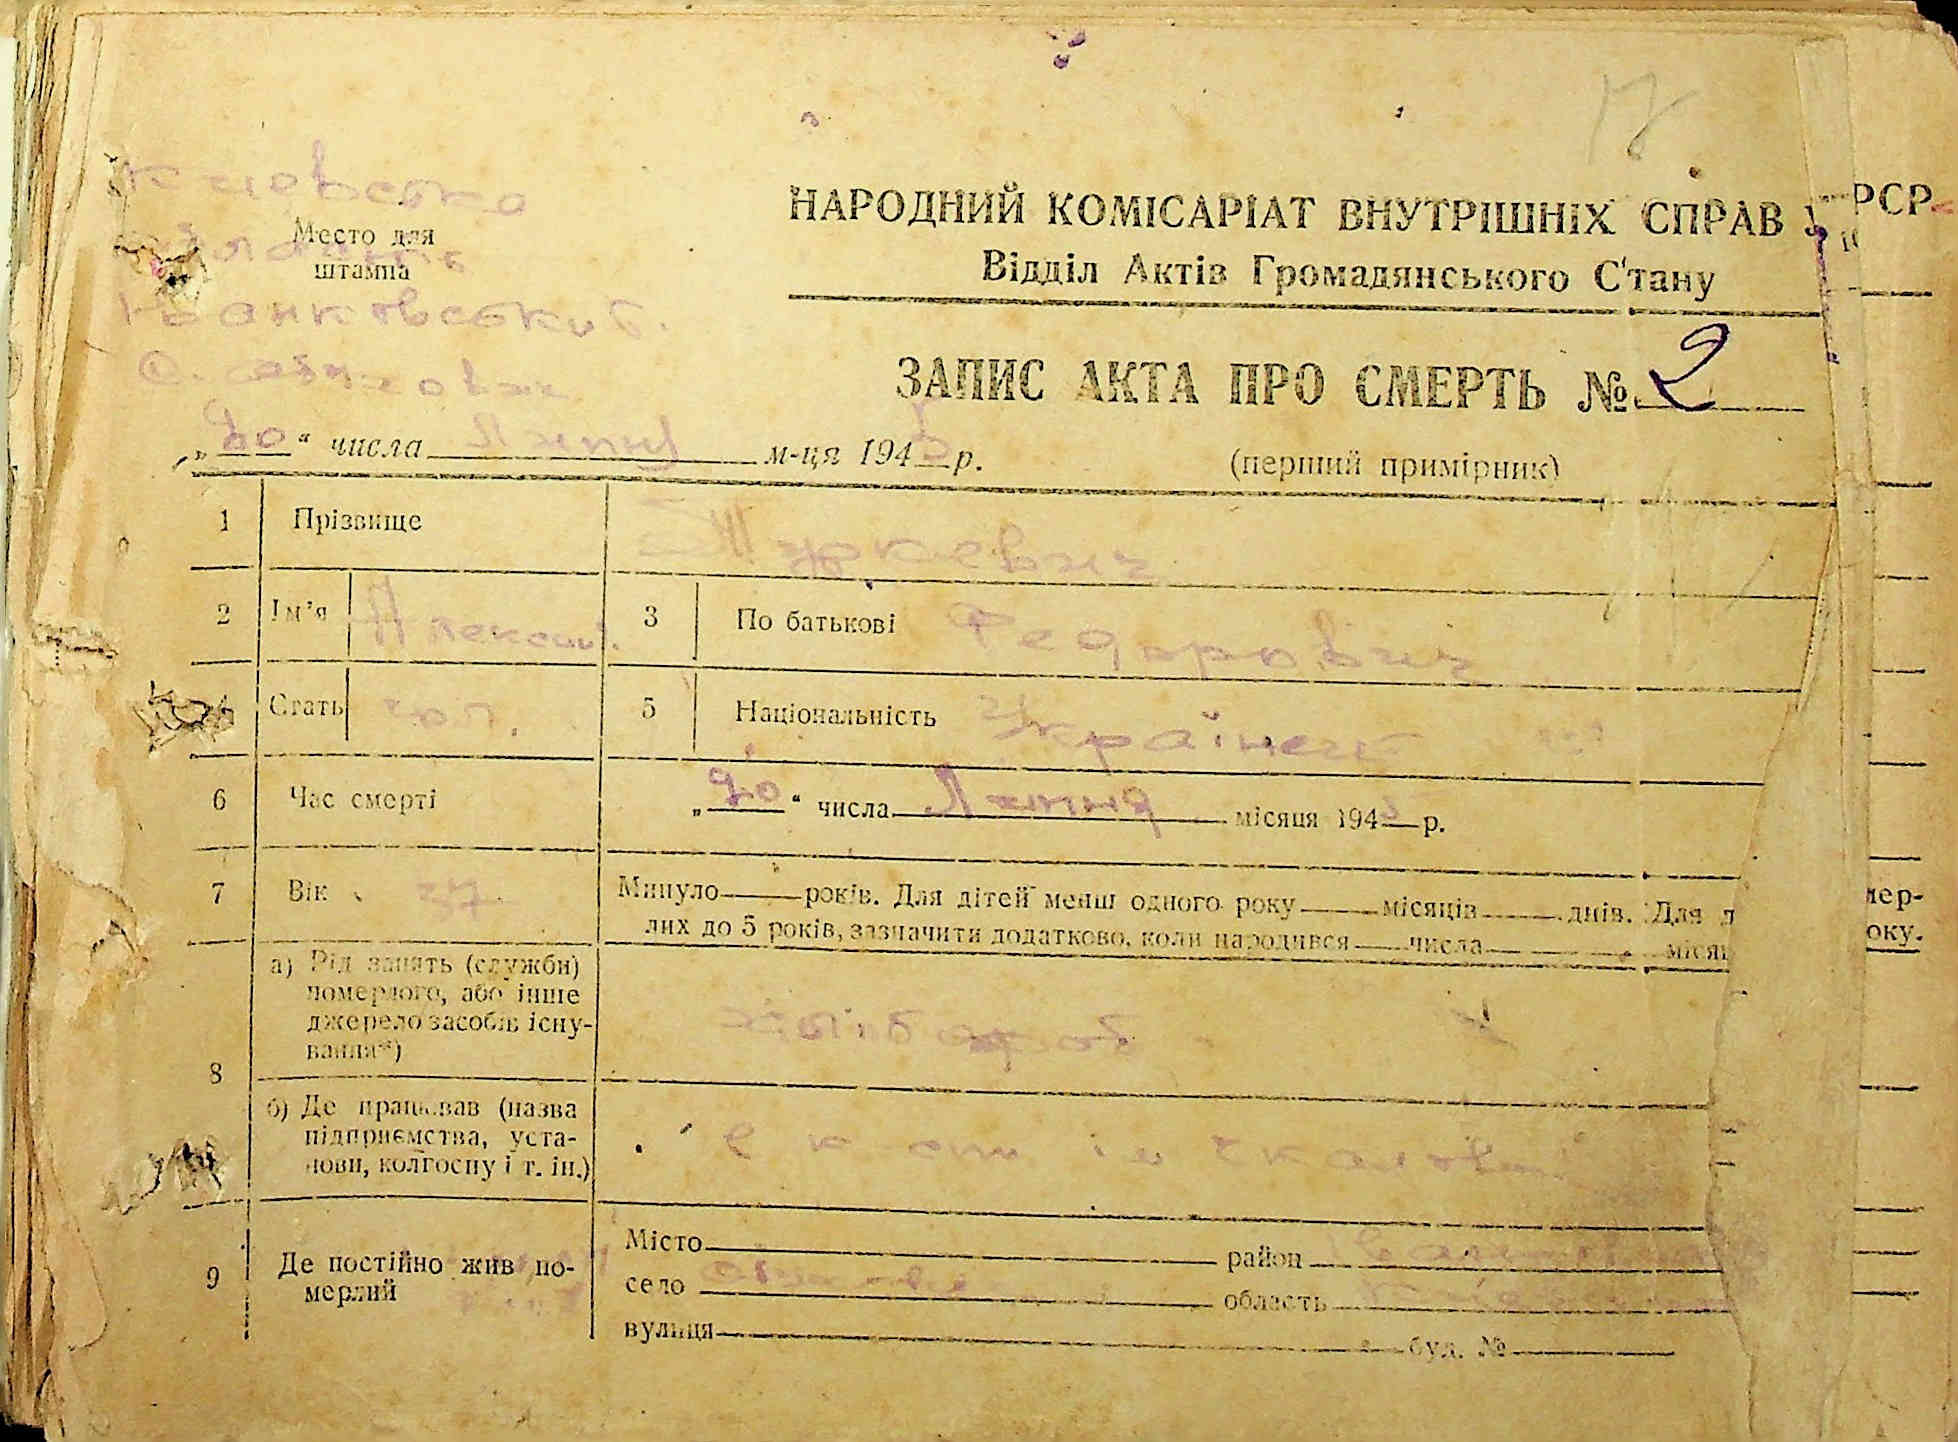 17
Київська
Место для
штампа
НАРОДНИЙ КОМІСАРІАТ ВНУТРІШНІХ СПРАВ У РСР
Відділ Актів Громадянського Стану
ЗАПИС АКТА ПРО СМЕРТЬ № 2
„20“ числа Липня м-ця 1945 р.
(перший примірник)
1 Прізвище Туркевич
2 Ім'я Алексий. 3 По батькові Федорович
4 Стать чол. 5 Національність Українець
6 Час смерті „20“ числа Липня місяця 1945 р.
7 Вік 37 Минуло років. Для дітей менш одного року місяців днів. Для мер-
лих до 5 років, зазначити додатково, коли народився числа місяц оку.
8 а) Рід занять (служби)
померлого, або інше
джерело засобів існу-
вання*)
хлібороб
б) Де працював (назва
підприємства, уста-
нови, колгоспу і т. ін.)
9 Де постійно жив по-
мерлий
Місто район
село область
вулиця буд. №